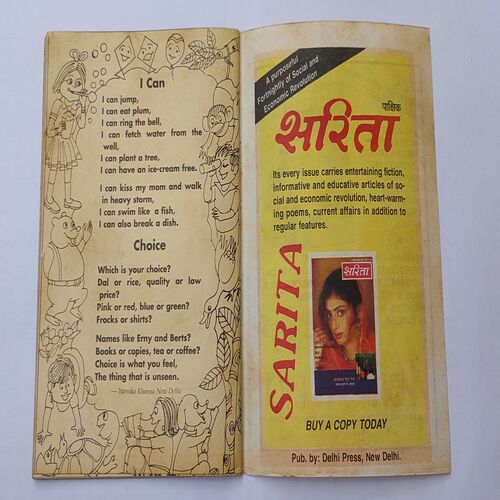 I Can
I can jump,
I can eat plum,
I can ring the bell,
I can fetch water from the
well,
I can plant a tree,
I can have an ice-cream free.
I can kiss my mom and walk
in heavy storm,
I can swim like a fish,
I can also break a dish.
Choice
Which is your choice?
Dal or rice, quality or low
price?
Pink or red, blue or green?
Frocks or shirts?
Names like Erny and Berts?
Books or copies, tea or coffee?
Choice is what you feel,
The thing that is unseen.
— Yamika Khanna, New Delhi.
A purposeful
Fortnightly of Social and
Economic Revolution
पाक्षिक
सरिता
Its every issue carries entertaining fiction,
informative and educative articles of so-
cial and economic revolution, heart-warm-
ing poems, current affairs in addition to
regular features.
SARITA
सरिता
BUY A COPY TODAY
Pub. by: Delhi Press, New Delhi.